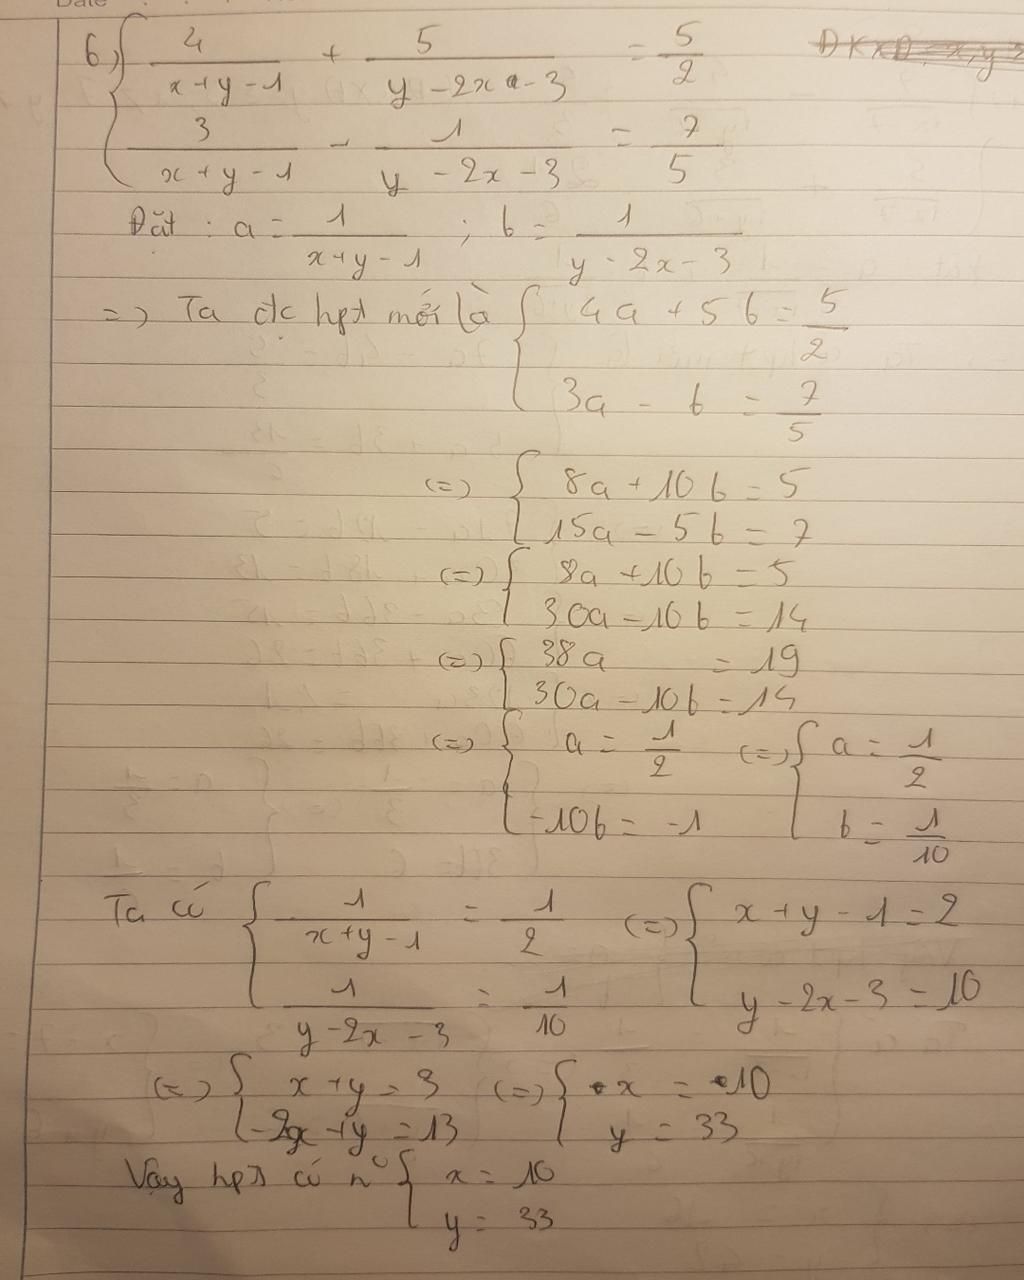 Date
6) { 4/(x+y-1) + 5/(y-2x-3) = 5/2
3/(x+y-1) - 1/(y-2x-3) = 7/5
Đặt : a = 1/(x+y-1) ; b = 1/(y-2x-3)
=> Ta đc hpt mới là { 4a + 5b = 5/2
3a - b = 7/5
(=) { 8a + 10b = 5
15a - 5b = 7
(=) { 8a + 10b = 5
30a - 10b = 14
(=) { 38a = 19
30a - 10b = 14
(=) { a = 1/2 (=) { a = 1/2
-10b = -1 b = 1/10
Ta có { 1/(x+y-1) = 1/2 (=) { x+y-1 = 2
1/(y-2x-3) = 1/10 y-2x-3 = 10
(=) { x+y = 3 (=) { x = 10
-2x+y = 13 y = 33
Vậy hpt có n° { x = 10
y = 33